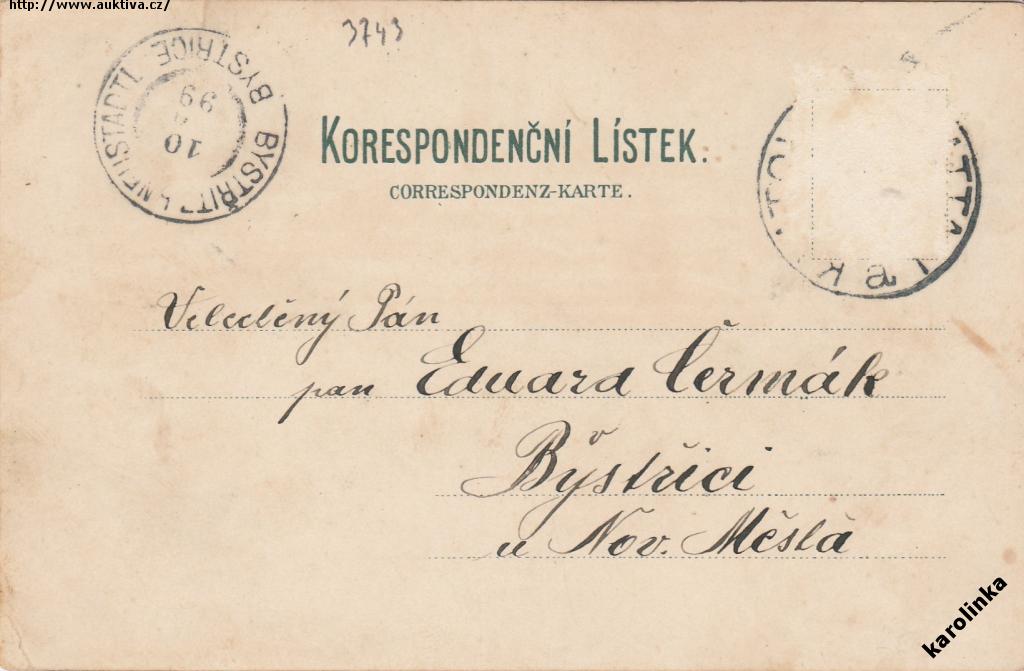 http://www.auktiva.cz/
3743
BYSTŘICE
BYSTŘITZ NEUSTADTL
10
99
KORESPONDENČNÍ LÍSTEK.
CORRESPONDENZ-KARTE.
Veleděný Pán
pan Eduard Čermák
v Býstřici
u Nov. Městá
karolinka